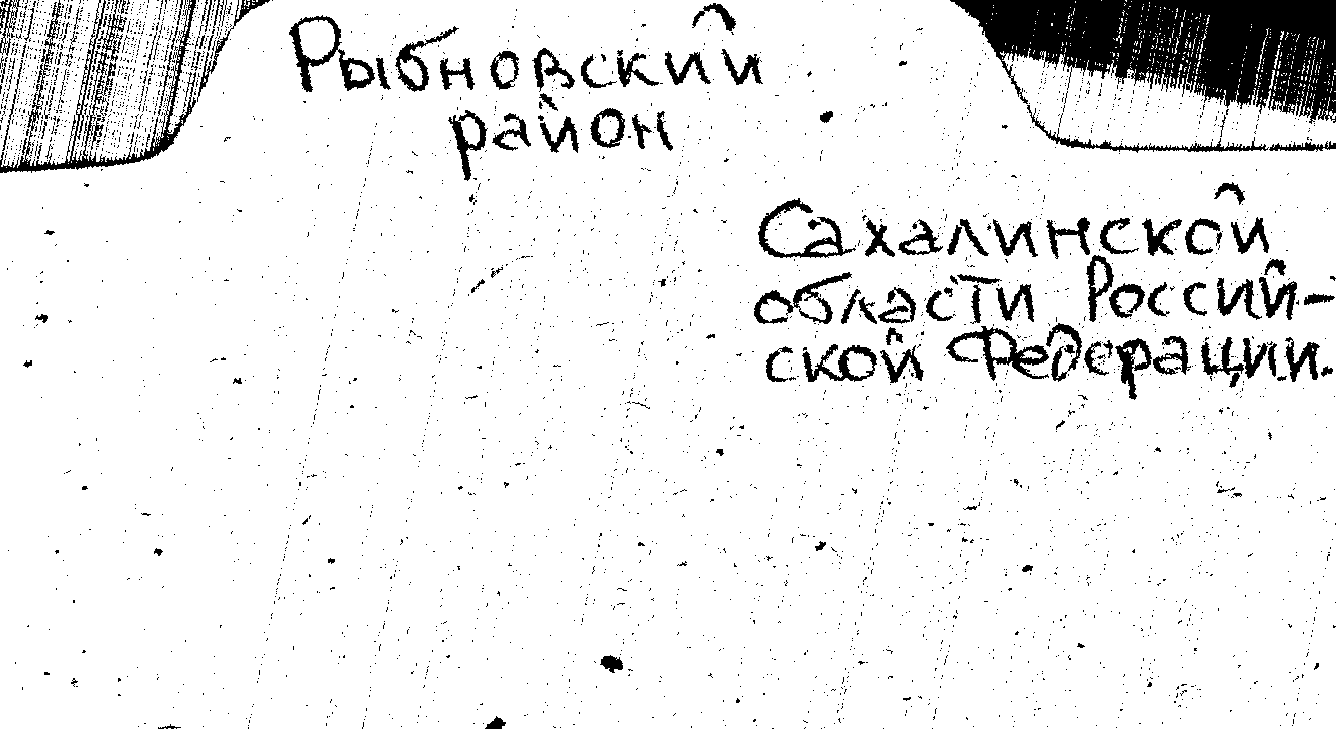 Рыбновский
район
Сахалинской
области Россий-
ской Федерации.